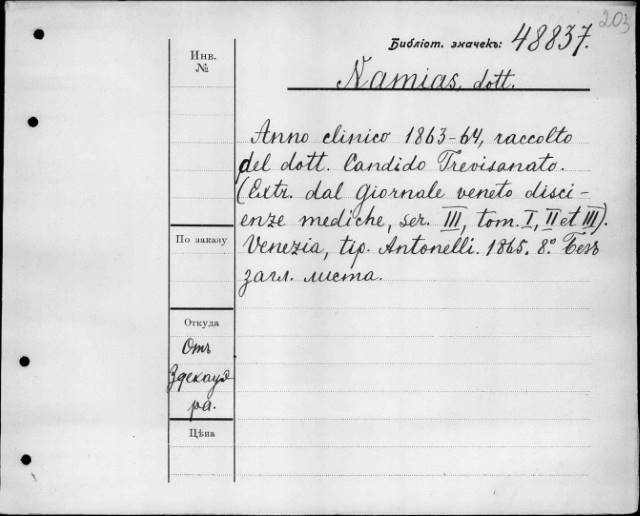 203
Библіот. значекъ: 48837.
Инв.
№
Namias, dott.
Anno clinico 1863-64, raccolto
del dott. Candido Trevisanato.
(Extr. dal Giornale veneto disci-
enze mediche, ser. III, tom. I, II et III).
По заказу
Venezia, tip. Antonelli. 1865. 8.° Безъ
загл. листа.
Откуда
Отъ
Здекауэ
ра.
Цѣна